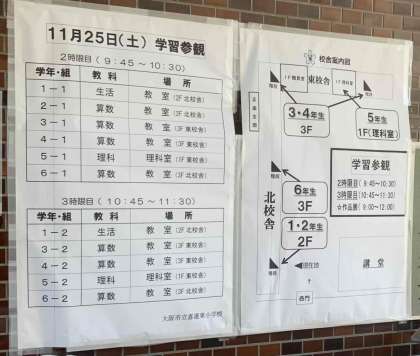 11月25日(土) 学習参観
2時限目(9:45～10:30)
学年・組 教科 場所
1－1 生活 教室(2F 北校舎)
2－1 算数 教室(2F 北校舎)
3－1 算数 教室(3F 東校舎)
4－1 算数 教室(3F 東校舎)
5－1 理科 理科室(1F 東校舎)
6－1 算数 教室(3F 北校舎)
3時限目(10:45～11:30)
学年・組 教科 場所
1－2 生活 教室(2F 北校舎)
3－2 算数 教室(3F 東校舎)
4－2 算数 教室(3F 東校舎)
5－2 理科 理科室(1F 東校舎)
6－2 算数 教室(3F 北校舎)
大阪市立喜連東小学校
校舎案内図
東校舎
階段
階段
3・4年生
3F
5年生
1F(理科室)
学習参観
2時限目(9:45～10:30)
3時限目(10:45～11:30)
☆作品展(9:00～12:00)
北校舎
階段
6年生
3F
1・2年生
2F
階段
現在地
西門
講堂